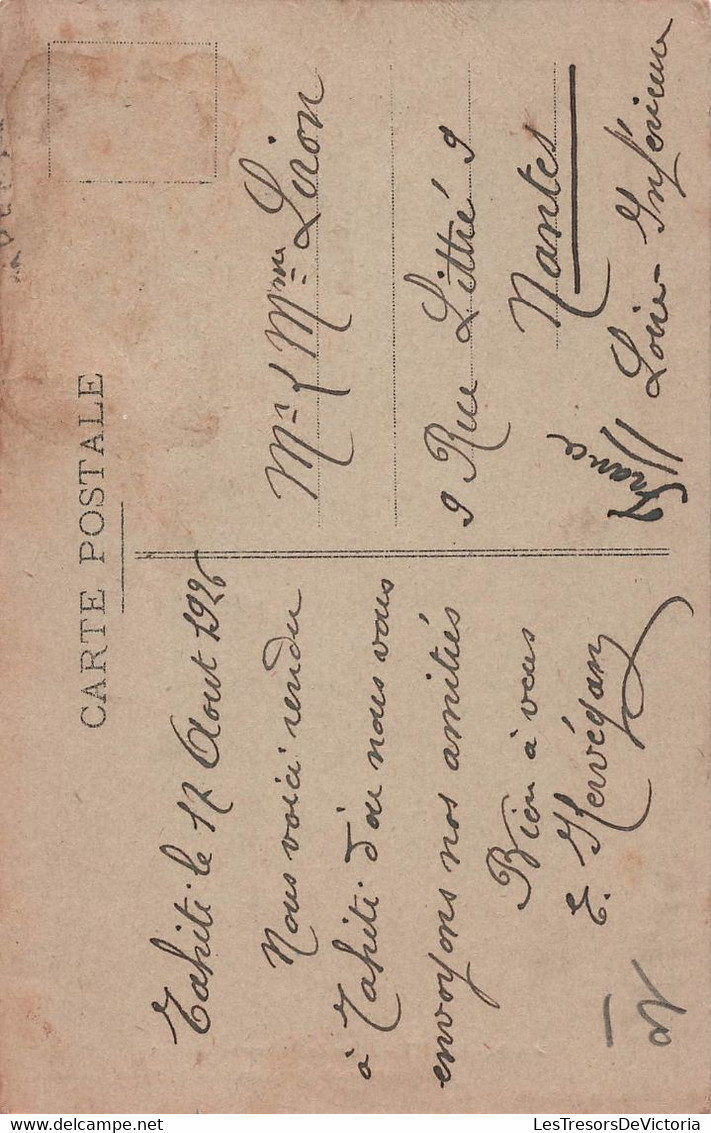 CARTE POSTALE
Tahiti le 17 Aout 1926
Nous voici rendu
à Tahiti d'où nous vous
envoyons nos amitiés
Bien à vous
E. Kervégan
Mr & Mme Liron
9 Rue Littré 9
Nantes
Loire-Inférieure
France
LesTresorsDeVictoria